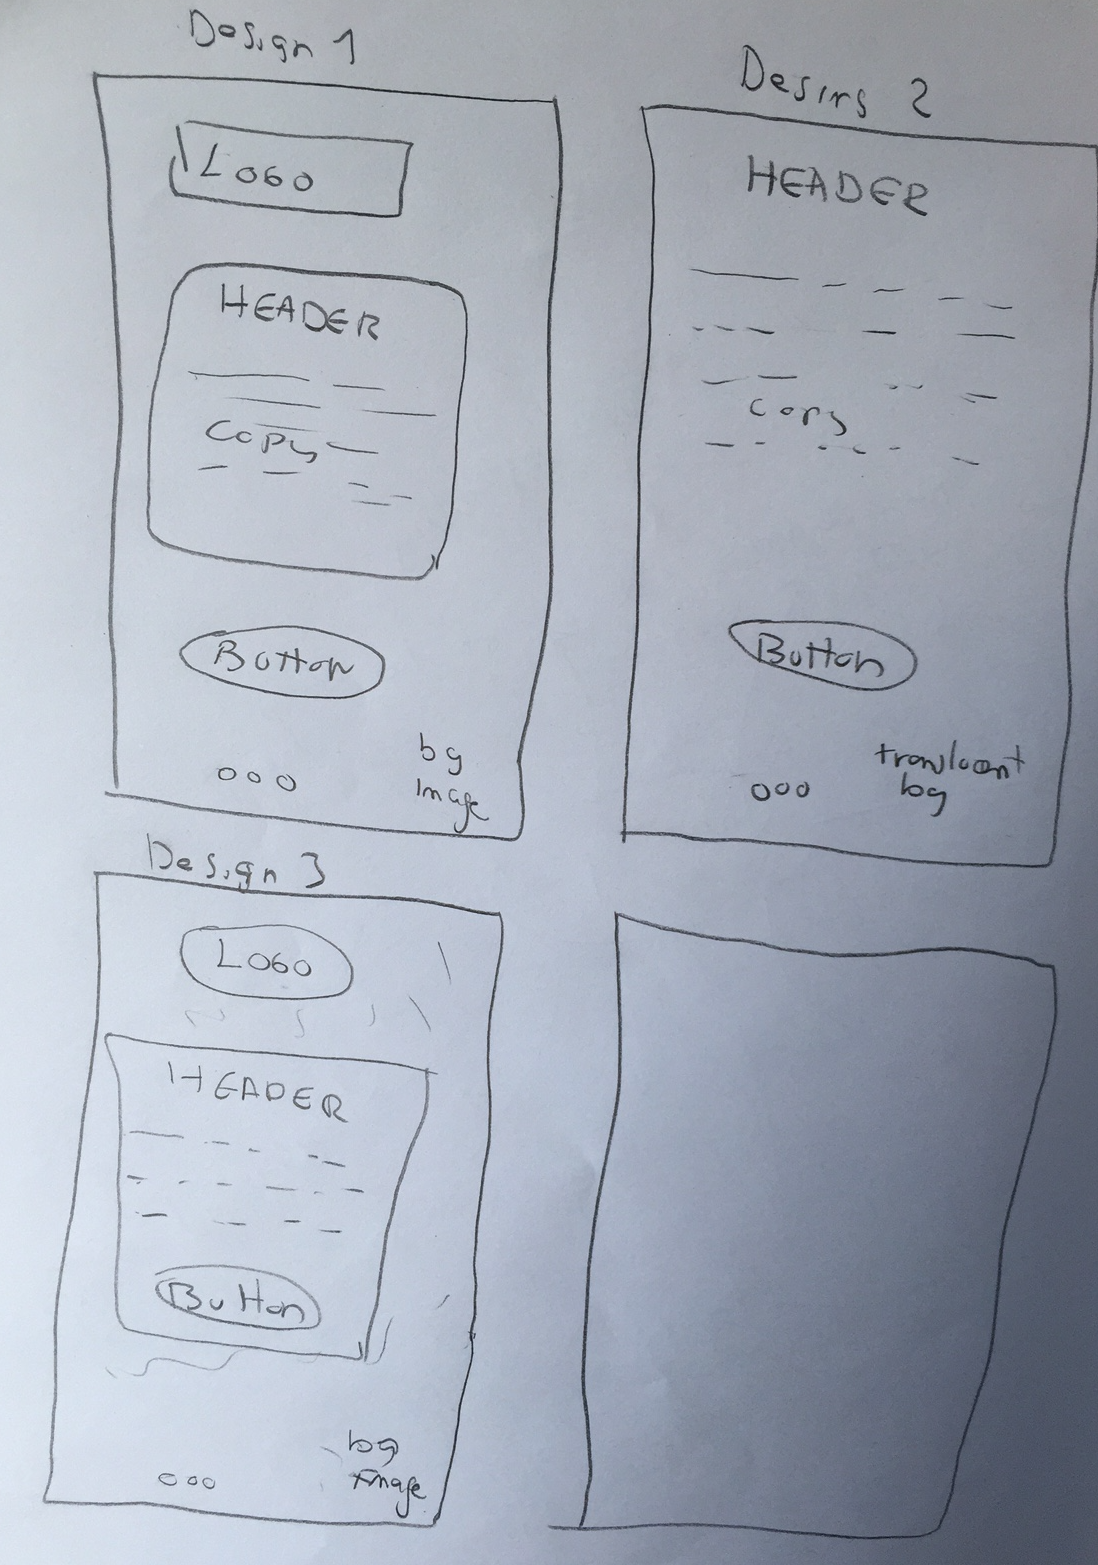 Design 1
LOGO
HEADER
Copy
Button
bg
Image
Desins 2
HEADER
Copy
Button
translucent
bg
Design 3
LOGO
HEADER
Button
bg
Image